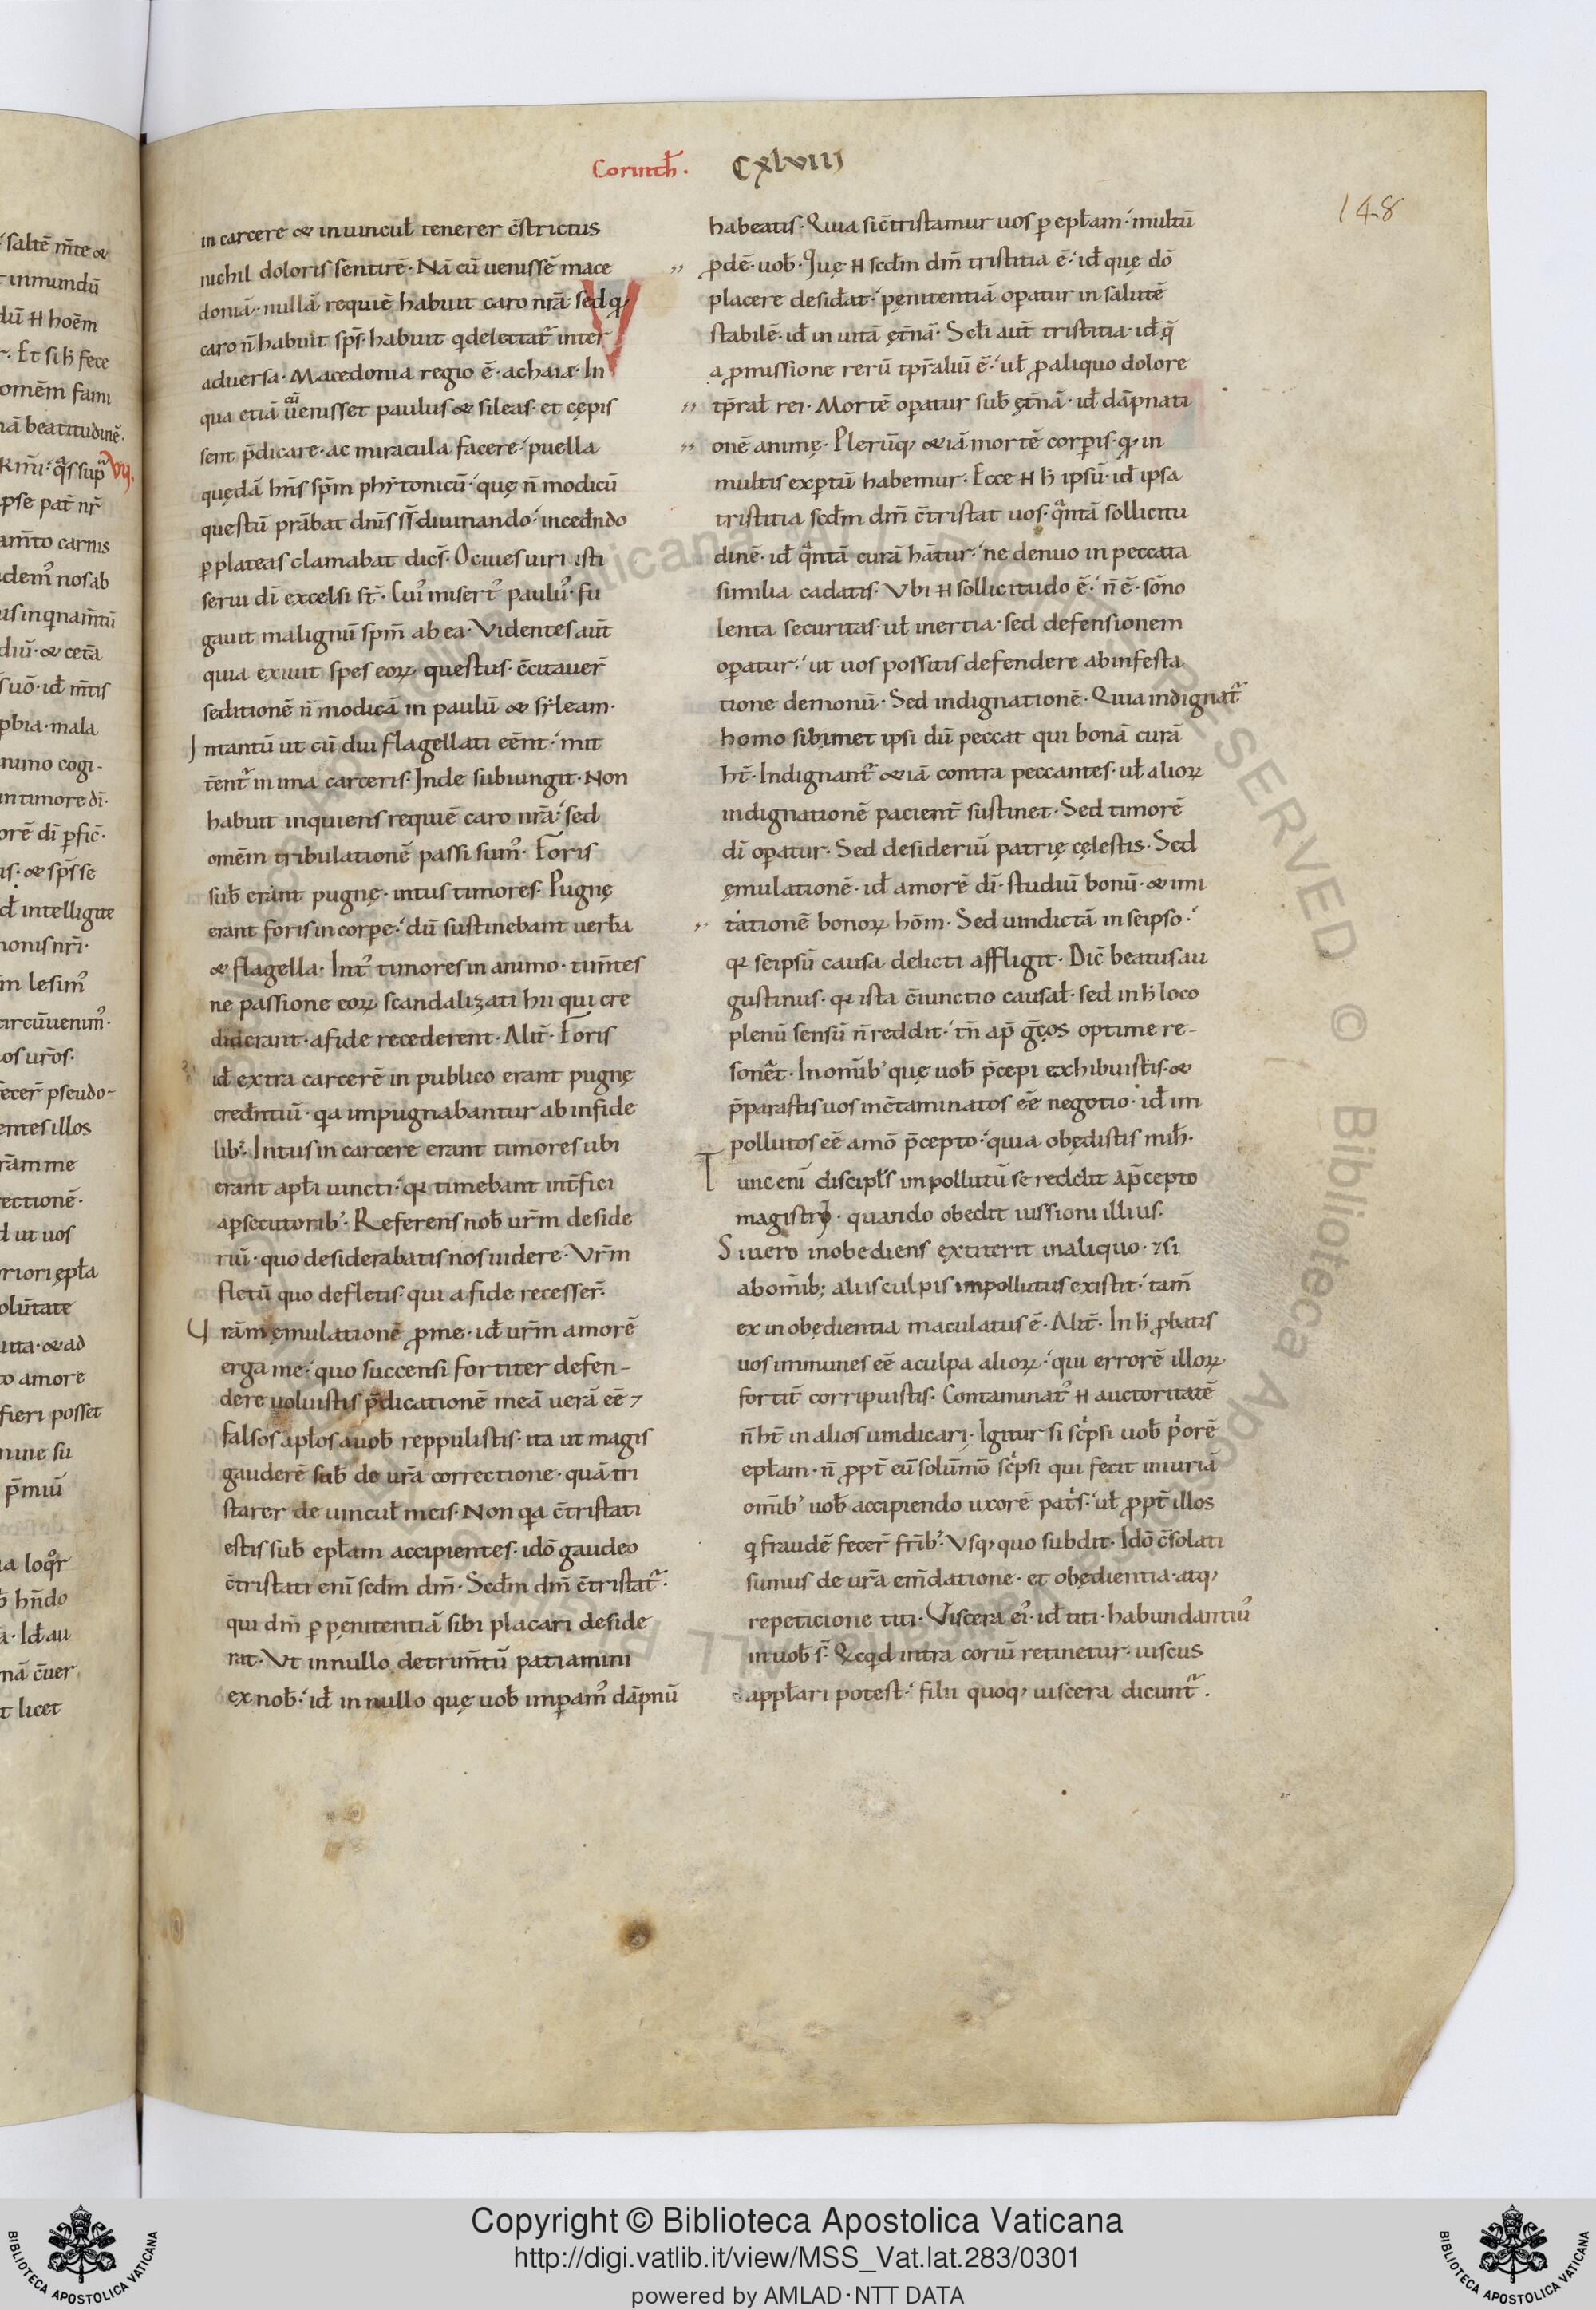 saltē m̄te &
inmundū
dū H hoēm
Et si ħ fece
omēm fami
nā beatitudinē.
pse pat̄ nr̄
am̄to carnis
dem᷒ nos ab
diū· & cet̄a
suō· id̄ m̄tis
pbia· mala
nimo cogi-
in timore dī·
orē dī p̱fic̄·
is· & sps̄ se
d̄ intelligite
nonis nr̄i·
m lesim᷒
circūuenim᷒·
os ur̄os·
fecer̄ pseudo-
entes illos
rām me
rectionē·
d ut uos
riori ępła
olūtate
uita· & ad
co amore
fieri posset
nine su
p̄miū
b̄ hn̄do
ā· Id̄ au
nā c̄uer
t licet
Corinth̄· CXLVIII
148
in carcere & in uincuł tenerer c̄strictus
nichil doloris sentirē· Nā cū uenissē mace
doniā· nullā requiē habuit caro nr̄a· sed q̨
caro n̄ habuit sps̄· habuit q delectat᷑ inter
aduersa· Macedonia regio ē· achaiæ· In
qua etiā cū uenisset paulus & sileas· et cępis
sent p̄dicare· ac miracula facere· puella
quędā hn̄s spm̄ phitonicū· quę n̄ modicū
questū prābat dnīs ss̄· diuinando· incedn̄do
p̱ plateas clamabat dics̄· O ciues uiri isti
serui dī excelsi st̄· Cui᷒ misert᷒ paulu᷒· fu
gauit malignū spm̄ ab ea· Videntes aut̄
quia exiuit spes eoꝝ questus· c̄citauer̄
seditionē n̄ modicā in paulū & syleam·
Intantū ut cū diu flagellati eēnt· mit
t̄ent᷑ in ima carceris· Inde subiungit· Non
habuit inquiens requiē caro nr̄a· sed
omēm tribulationē passi sum᷒· Foris
sub̄ erant pugnę· intus timores· Pugnę
erant foris in corp̱e· dū sustinebant uerb̄a
& flagella· Int᷒ timores in animo· tim̄tes
ne passione eoꝝ scandalizati hii qui cre
diderant· a fide recederent· Alit̄· Foris
id̄ extra carcerē in publico erant pugnę
credn̄tiū· qa impugnabantur ab infide
lib᷒· Intus in carcere erant timores ubi
erant apłi uincti· qꝛ timebant int̄fici
a p̱secutorib᷒· Referens nob̄ ur̄m deside
riū· quo desiderabatis nos uidere· Vr̄m
fletū quo defletis· qui a fide recesser̄·
Vrām ęmulationē ꝓ me· id̄ ur̄m amorē
erga me· quo succensi fortiter defen-
dere uoluistis p̄dicationē meā uerā eē ⁊
falsos apłos a uob̄ reppulistis· ita ut magis
gauderē sub̄ de ur̄a correctione· quā tri
starer de uincuł meis· Non qa c̄tristati
estis sub̄ epłam accipientes· idō gaudeo
c̄tristati enī scd̄m dm̄· Scd̄m dm̄ c̄tristat᷑·
qui dm̄ p̱ penitentiā sibi placari deside
rat· Vt in nullo detrim̄tū patiamini
ex nob̄· id̄ in nullo quę uob̄ imp̱am᷒ dāpnū
habeatis· Quia si c̄tristamur uos p̱ epłam· multū
ꝓdē· uob̄· Quę H scd̄m dm̄ tristitia ē· id̄ quę dō
placere desid̄at· pęnitentiā op̱atur in salutē
stabilē· id̄ in uitā ęt̄nā· Scłi aut̄ tristitia· id̄ q̄
a ꝓmissione rerū tpr̄aliū ē· uł ꝓ aliquo dolore
tp̄rał rei· Mortē op̱atur sub̄ ęt̄nā· id̄ dāpnati
onē animę· Plerūq; & iā mortē corp̱is· q̨ in
multis exp̱tū habemur· Ecce H ħ ipsū· id̄ ipsa
tristitia scd̄m dm̄ c̄tristat uos· qᵃntā sollicitu
dinē· id̄ qᵃntā curā hāt̄ur· ne denuo in peccata
similia cadatis· Vbi H sollicitudo ē· n̄ ē· sōno
lenta securitas· uł inertia· sed defensionem
op̱atur· ut uos possitis defendere ab infesta
tione demonū· Sed indignationē· Quia indignat᷑
homo sibimet ipsi dū peccat qui bonā curā
ht̄· Indignant᷑ & iā contra peccantes· uł alioꝝ
indignationē pacient̄ sustinet· Sed timorē
dī op̱atur· Sed desideriū patrię cęlestis· Sed
ęmulationē· id̄ amorē dī· studiū bonū· & imi
tationē bonoꝝ hōm· Sed uindictā in seipso·
qꝛ seipsū causa delicti affligit· Dic̄ beatus au
gustinus· qꝛ ista c̄iunctio causał· sed in ħ loco
plenū sensū n̄ reddit· tn̄ ap̄ gr̄ęcos optime re-
sonēt· In omīb᷒ quę uob̄ p̄cepi exhibuistis· &
p̄parastis uos inc̄taminatos eē negotio· id̄ im
pollutos eē amō p̄cepto· quia obędistis mih̄·
Tunc enī discipłs impollutū se reddit a p̄cepto
magistri· quando obedit iussioni illius·
Si uero inobediens ęxtiterit in aliquo· ⁊ si
ab omīb; aliis culpis impollutus existit· tam̄
ex inobędientia maculatus ē· Alit̄· In ħ ꝓbatis
uos immunes eē a culpa alioꝝ· qui errorē illoꝝ
fortit̄ corripuistis· Contaminat᷒ H auctoritatē
n̄ ht̄ in alios uindicari· Igitur si scͥpsi uob̄ pͥorē
epłam· n̄ ꝓpt̄ eū solūmō scͥpsi qui fecit iniuriā
omīb᷒ uob̄ accipiendo uxorē pat̄s· uł ꝓpt̄ illos
q fraudē fecer̄ fr̄ib᷒· Vsq; quo subdit· Idō c̄solati
sumus de ur̄a em̄datione· et obędientia· atq;
repeticione titi· Viscera ei᷒· id̄ titi· habundantiu᷒
in uob̄ s̄· Qcqd intra coriū retinetur· uiscus
appłari potest· filii quoq; uiscera dicunt᷑·
Copyright © Biblioteca Apostolica Vaticana
http://digi.vatlib.it/view/MSS_Vat.lat.283/0301
powered by AMLAD·NTT DATA
BIBLIOTECA APOSTOLICA VATICANA
BIBLIOTECA APOSTOLICA VATICANA